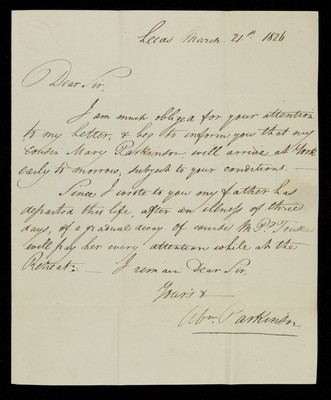 Leeds March 21st 1826
Dear Sir,
I am much obliged for your attention
to my letter, & beg to inform you that my
Cousin Mary Parkinson, will arrive at York
early to morrow, subject to your conditions. —
Since I wrote to you my father has
departed this life, after an illness of three
days, of a gradual decay of course Mr P.
will pay her every attention while at the
Retreat. — I remain Dear Sir,
Yours &
Abm. Parkinson